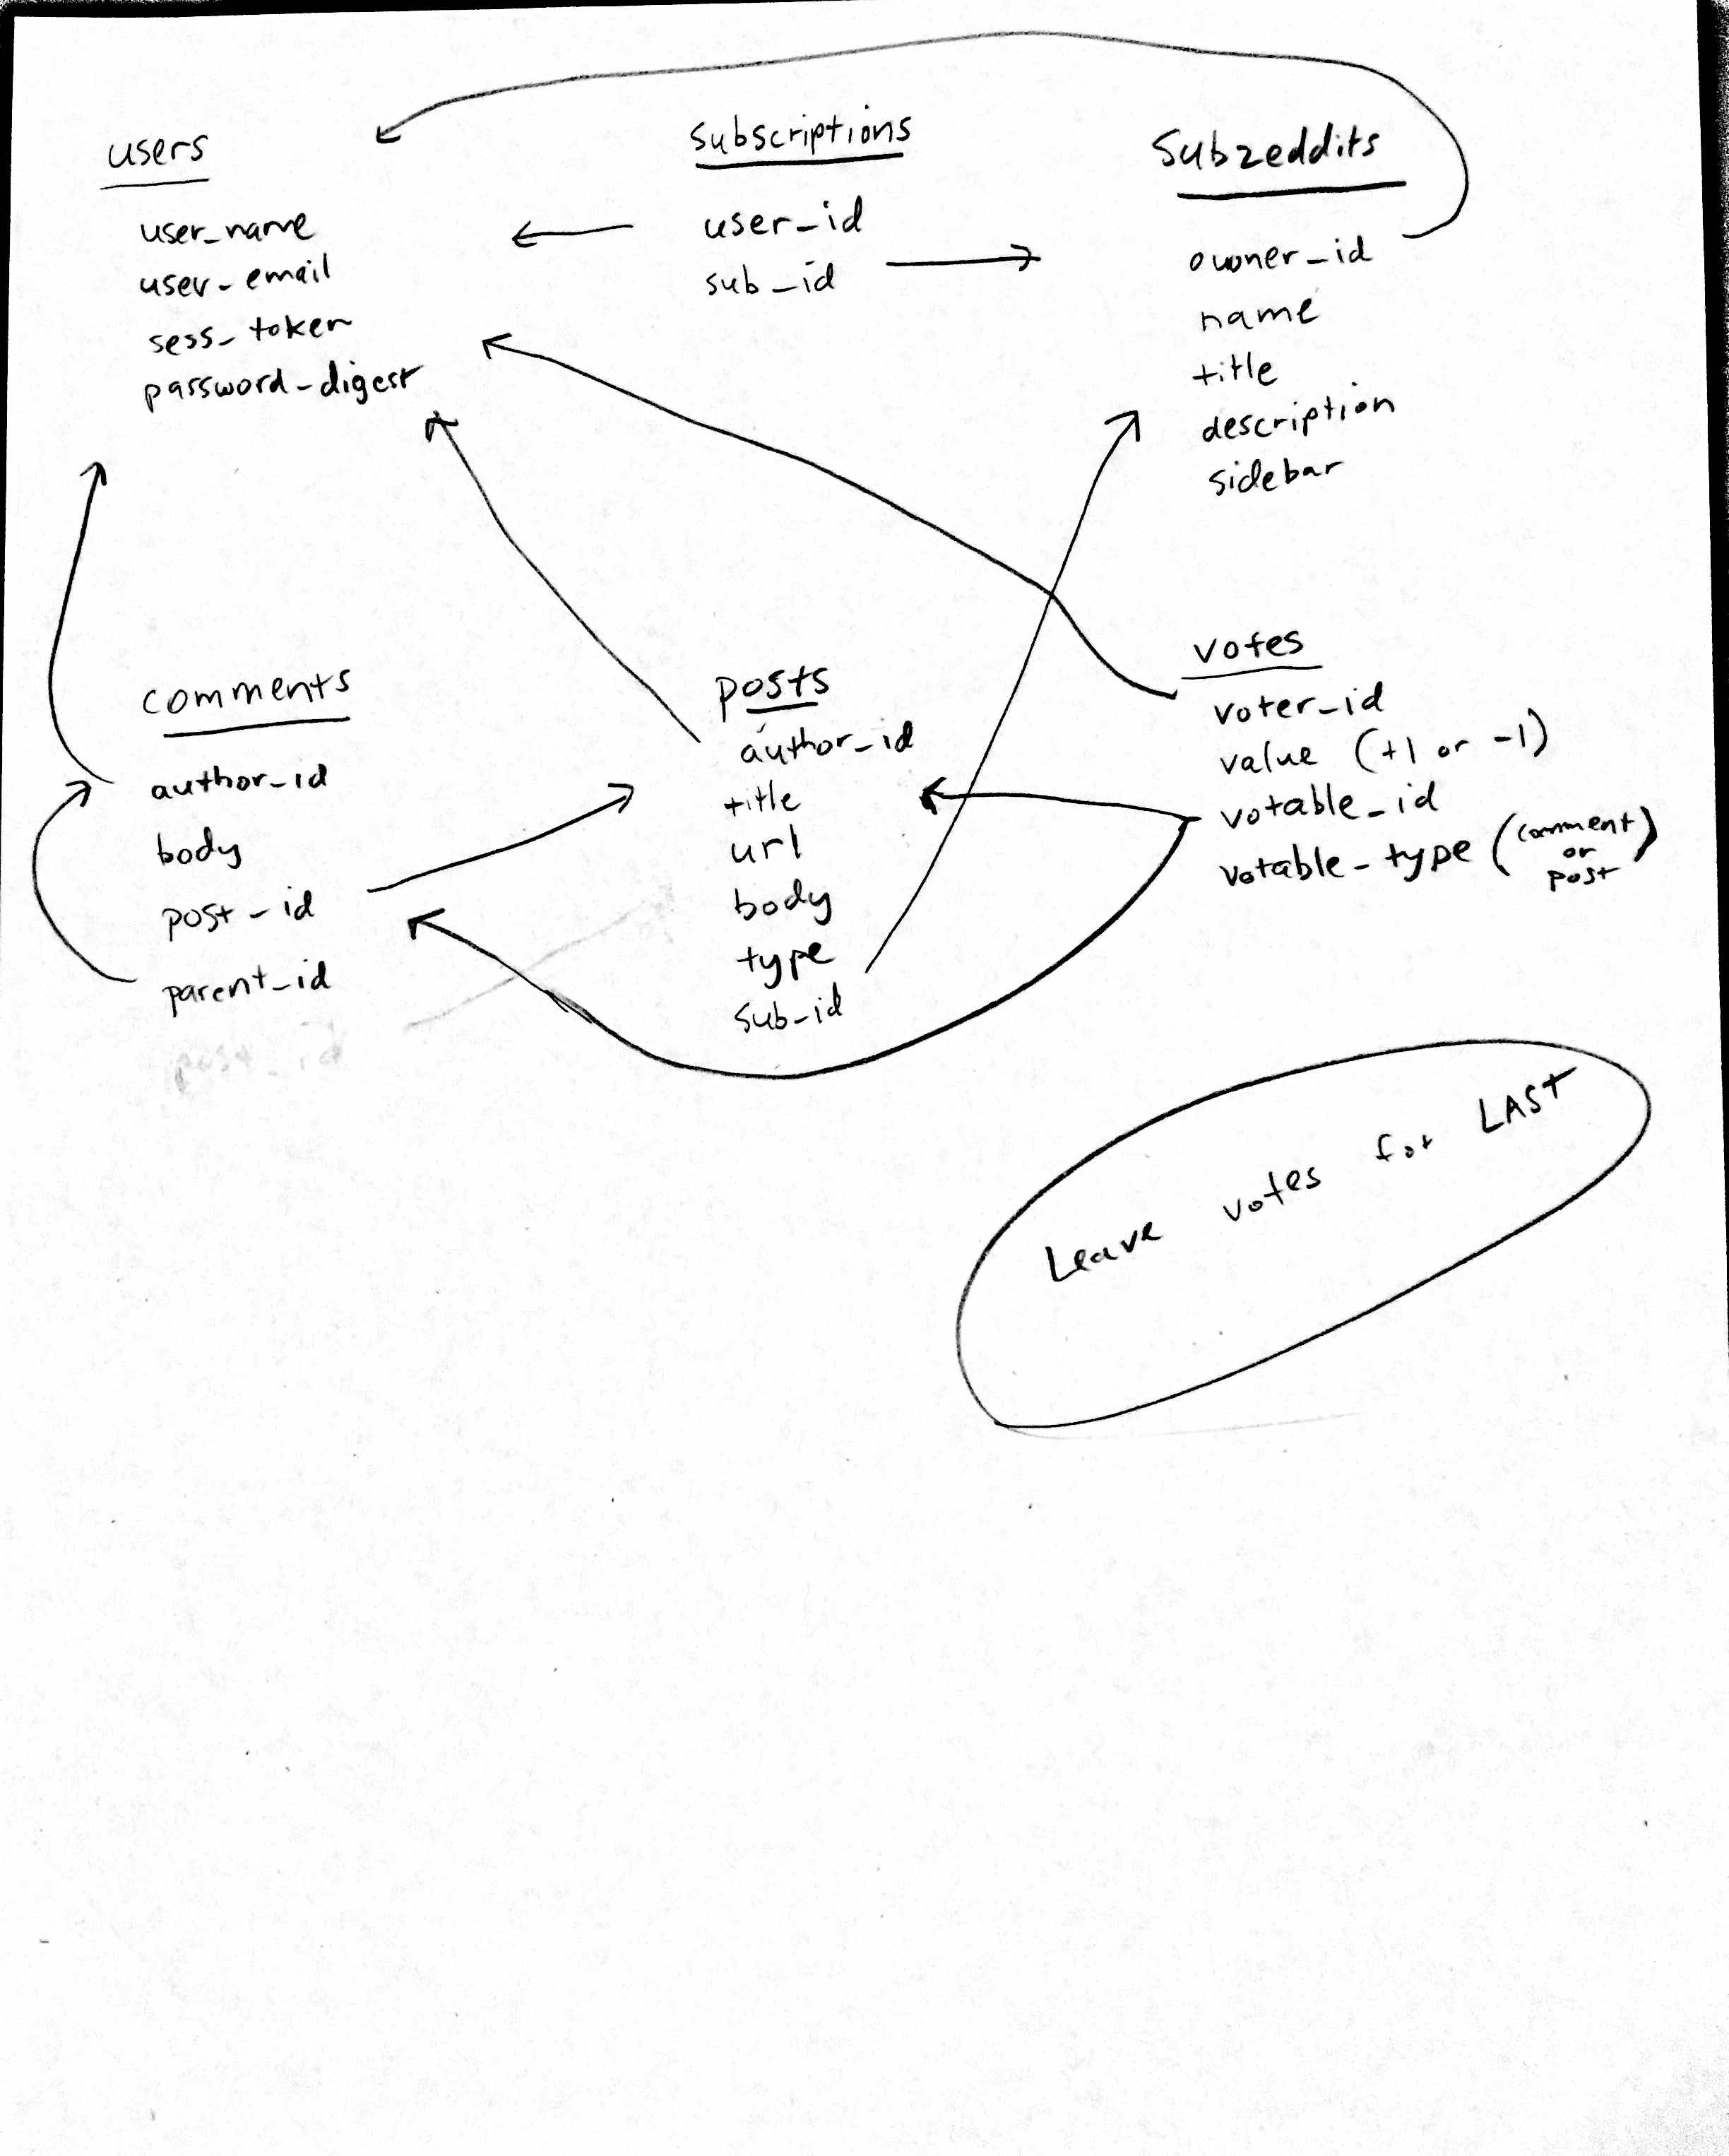 users
user_name
user_email
sess_token
password_digest
subscriptions
user_id
sub_id
Subzeddits
owner_id
name
title
description
sidebar
comments
author_id
body
post_id
parent_id
posts
author_id
title
url
body
type
sub_id
votes
voter_id
value (+1 or -1)
votable_id
votable_type (comment or post)
Leave votes for LAST